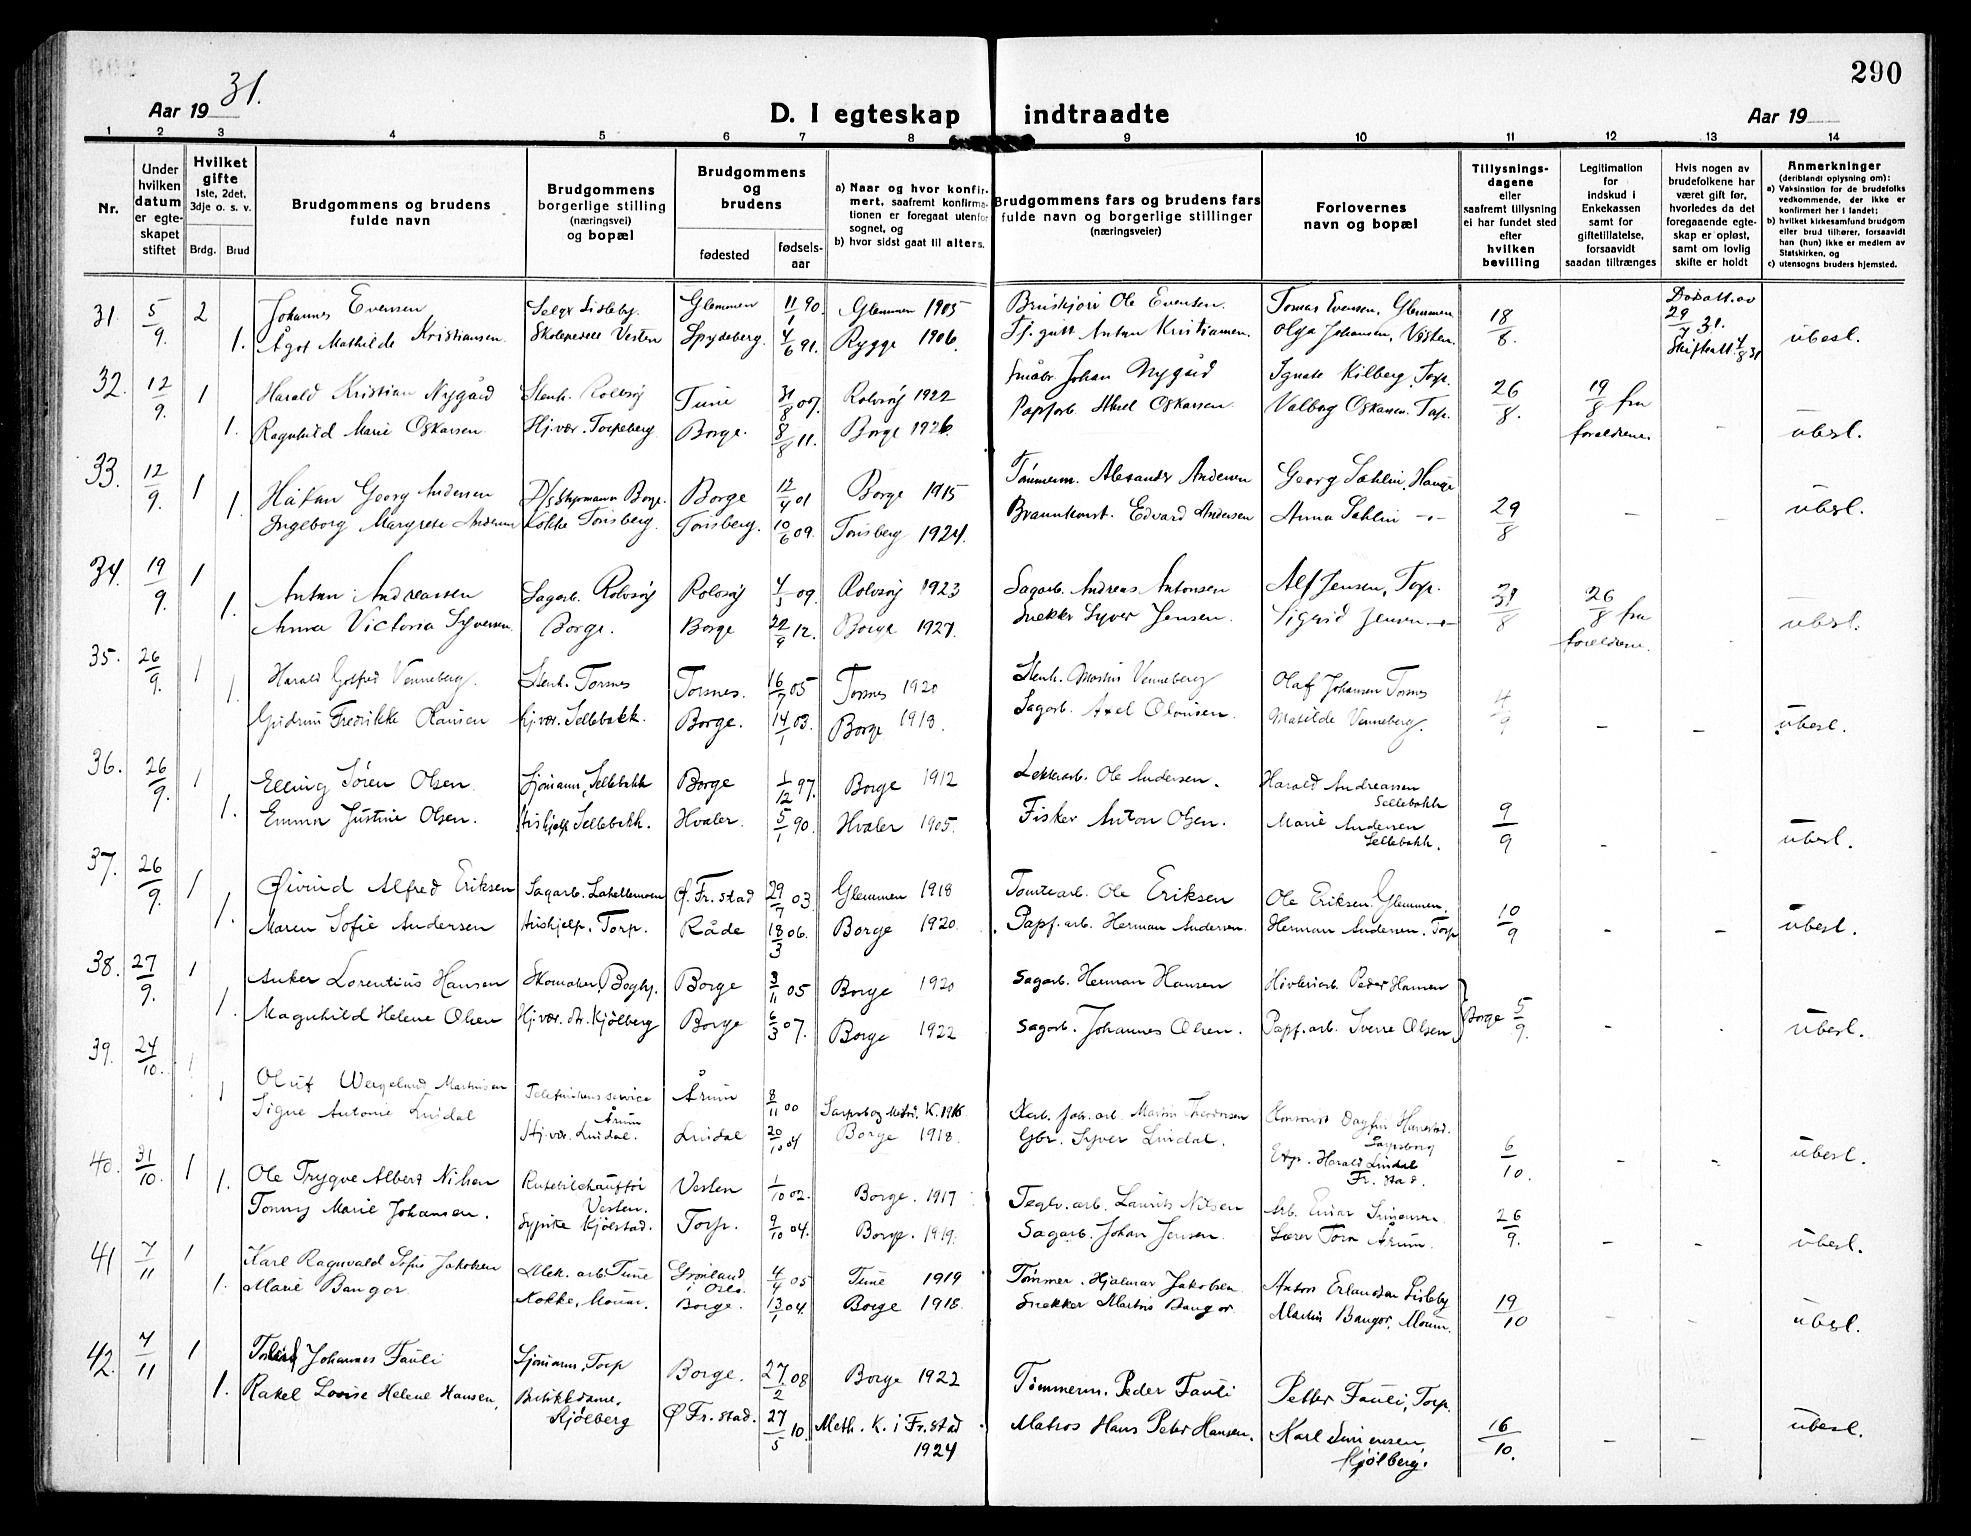 290
Aar 19 31.
D. I egteskap indtraadte
Aar 19
1 2 3 4 5 6 7 8 9 10 11 12 13 14
Nr.
Under hvilken datum er egteskapet stiftet
Hvilket gifte 1ste, 2det, 3dje o. s. v.
Brdg. Brud
Brudgommens og brudens fulde navn
Brudgommens borgerlige stilling (næringsvei) og bopæl
Brudgommens og brudens
fødested
fødselsaar
a) Naar og hvor konfirmert, saafremt konfirmationen er foregaat utenfor sognet, og
b) hvor sidst gaat til alters.
Brudgommens fars og brudens fars fulde navn og borgerlige stillinger (næringsveier)
Forlovernes navn og bopæl
Tillysningsdagene eller saafremt tillysning ei har fundet sted efter hvilken bevilling
Legitimation for indskud i Enkekassen samt for giftetillatelse, forsaavidt saadan tiltrænges
Hvis nogen av brudefolkene har været gift før, hvorledes da det foregaaende egteskap er opløst, samt om lovlig skifte er holdt
Anmerkninger (deriblandt oplysning om):
a) Vaksinstion for de brudefolks vedkommende, der ikke er konfirmert her i landet;
b) hvilket kirkesamfund brudgom eller brud tilhører, forsaavidt han (hun) ikke er medlem av Statskirken, og
c) utensogns bruders hjemsted.
31. 5/9. 2 Johannes Evensen Lisleby. Glemmen 11/1 90. Glemmen 1905 Ole Evensen. Tomas Evensen, Glemmen 18/8. 29/7 31.
1. Ågot Mathilde Kristiansen. Vesten Spydeberg. 4/6 91. Rygge 1906. Anton Kristiansen. Olga Johansen, Vesten. ubesl.
32. 12/9. 1 Harald Kristian Nygård Stenh. Rolvsøy Tune 31/8 07. Rolvsøy 1922 Småbr. Johan Nygård Ignate Kilberg, Torp. 26/8. 19/8 fra
1. Ragnhild Marie Oskarsen Hj.vær. Torpeberg Borge. 8/8 11. Borge 1926. Papfarb. Aksel Oskarsen Valborg Oskarsen. Torp. foreldrene. - ubesl.
33. 12/9. 1 Håkan Georg Andersen Borge. Borge 12/4 01 Borge 1915 Tømmerm. Alexander Andersen Georg Sahlin, Hauge
1. Ingeborg Margrete Andersen Kokke Torisberg. Torisberg. 10/6 09. Torisberg 1924. Edvard Andersen Anna Sahlin -"- 29/8 - - ubesl.
34. 19/9. 1 Anton Andreassen Sagarb. Rolvsøy Rolvsøy 4/3 09. Rolvsøy 1923 Sagarb. Andreas Antonsen Alf Jensen, Torp. 31/8 26/8 fra
1. Anna Victoria Syversen. Borge. Borge 22/9 12. Borge 1927. Snekker Syver Jensen. Sigrid Jensen -"- foreldrene. ubesl.
35. 26/9. 1 Harald Gotfred Venneberg. Stenh. Torsnes Torsnes. 16/7 05 Torsnes 1920 Stenh. Martin Venneberg Olaf Johansen Torsnes 4/9
1. Gudrun Fredrikke Olausen Hj.vær. Sellebakk. Borge. 14/1 03. Borge 1918. Sagarb. Axel Olausen. Matilde Venneberg. - - ubesl.
36. 26/9. 1 Elling Søren Olsen. Sjømann, Sellebakk Borge 1/12 97. Borge 1912 Ole Andersen. Harald Andreassen Sellebakk 9/9
1. Emma Justine Olsen. Hushjelp Sellebakk. Hvaler. 5/1 90. Hvaler 1905. Fisker Anton Olsen. Marie Andersen Sellebakk. - - ubesl.
37. 26/9. 1 Øivind Alfred Eriksen Sagarb. Lahellemoen Ø. Fr.stad 29/7 03. Glemmen 1918 Tomtearb. Ole Eriksen Ole Eriksen. Glemmen. 10/9
1. Maren Sofie Andersen Hushjelp. Torp. Råde 18/3 06. Borge 1920. Papf.arb. Herman Andersen. Herman Andersen. Torp - - ubesl.
38. 27/9. 1 Anker Lorentius Hansen Skomaker, Borge 3/11 05 Borge 1920 Sagarb. Herman Hansen Høvleriarb. Peder Hansen Borge 5/9.
1. Magnhild Helene Olsen Hj.vær. dt. Kjølberg Borge 6/3 07. Borge 1922 Sagarb. Johannes Olsen. Papf.arb. Sverre Olsen - ubesl.
39. 24/10. 1 Oluf Wergeland Martinsen Telefunkens service Årum Årum 8/11 00 Sarpsborg Metod. K. 1916 Martin Theodorsen Dagfin Hanestad. Sarpsborg
1 Signe Antonie Lindal Hj.vær. Lindal. Lindal 20/10 04 Borge 1918. Gbr. Syver Lindal. Harald Lindal Fr.stad. 6/10. - - ubesl.
40. 31/10. 1 Ole Trygve Albert Nilsen Rutebilchauffør Vesten. Vesten 1/10 02. Borge. 1917 Teglv.arb. Laurits Nilsen Arb. Einar Simensen 26/9.
1. Tonny Marie Johansen. Sypike Kjølstad. Torp. 9/10 04. Borge. 1919. Sagarb. Johan Jensen. Lærer Torn Årum. - - ubesl.
41 7/11 1 Karl Ragnvald Sofus Jakobsen Mek. arb. Tune Grønland i Oslo. 4/4 05 Tune 1919 Tømmer. Hjalmar Jakobsen Anton Erlandsen Lisleby 19/10
1. Marie Bangor Kokke, Moum. Borge. 13/1 04. Borge 1918. Snekker Martin Bangor. Martin Bangor, Moum. - - ubesl.
42. 7/11 1 Johannes Fauli Sjømann, Torp Borge. 27/2 08 Borge 1922 Tømmerm. Peder Fauli Petter Fauli, Torp.
1. Rakel Lovise Helene Hansen. Butikkdame, Kjølberg Ø Fr.stad. 27/5 10. Meth. K. i Fr.stad 1924 Matros Hans Peter Hansen. Karl Simensen, Kjølberg. 16/10. - - ubesl.